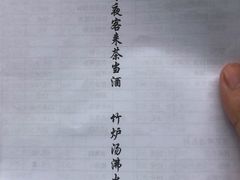 夜客来茶当酒 竹炉汤沸